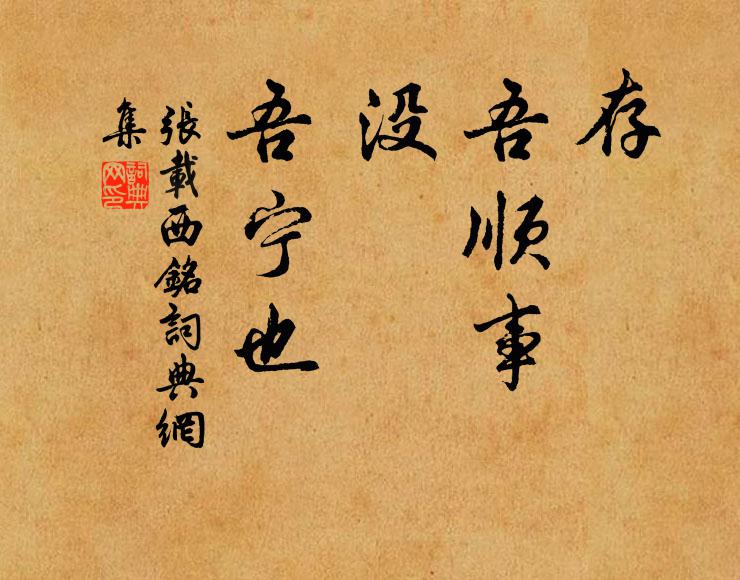 存
吾顺事
没
吾宁也
張載西銘詞典網
集
詞典
网印